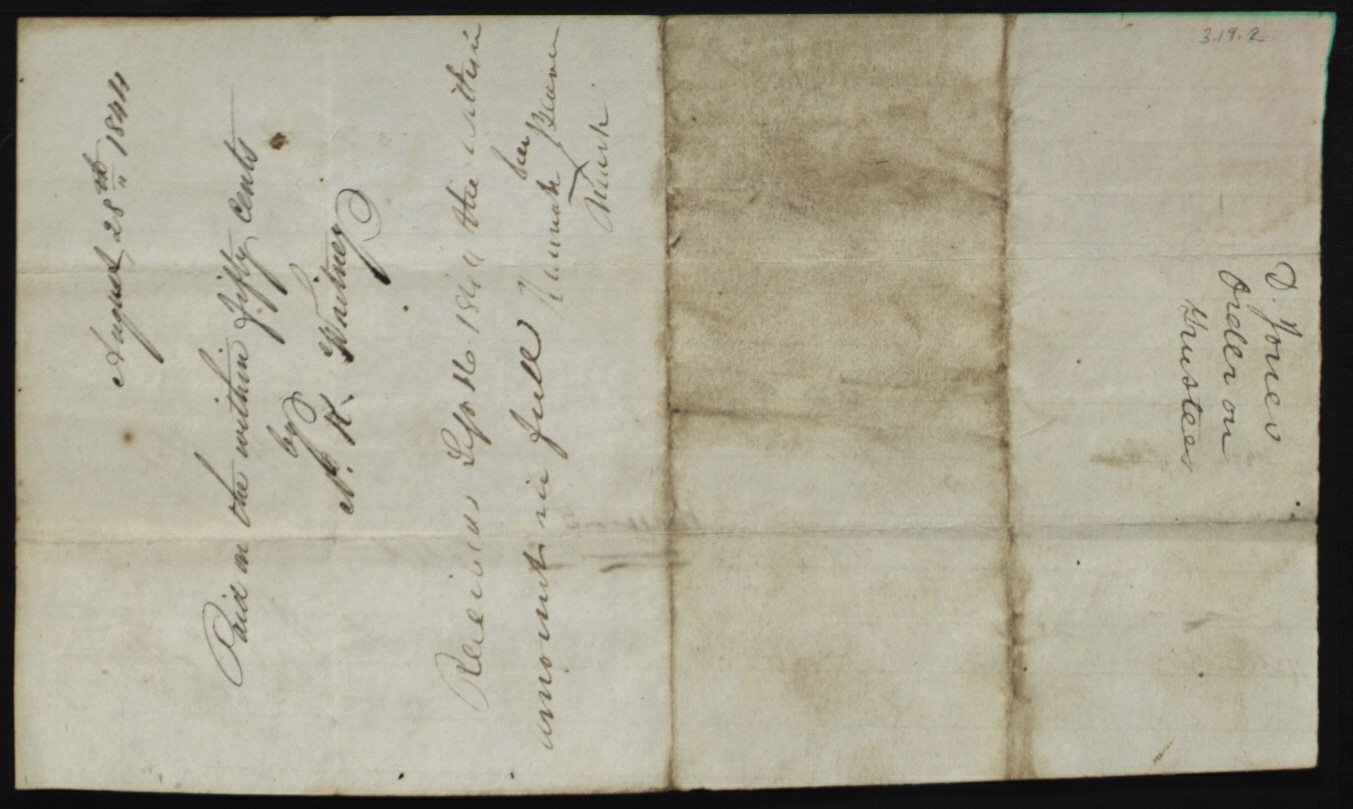 August, 28th 1844
Paid on the within fifty cents
by
N. K. Whitney
Received Sept 16 1844 the within
amount in full Hannah her Beaver
Mark
D. Jones
Order on
Trustees
3.19.2